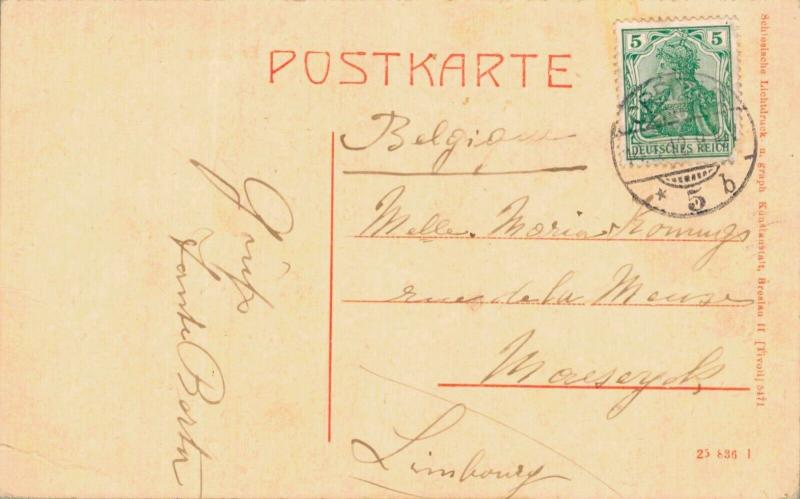 POSTKARTE
5 5
DEUTSCHES REICH
* 5 b
Belgique
Melle. Maria Konings
rue de la Meuse
Maeseyck
Limbourg
Grüße
Tante Berta
Schlesische Lichtdruck u. graph Kunstanstalt, Breslau II [Tivoli] 5471
25 836 1